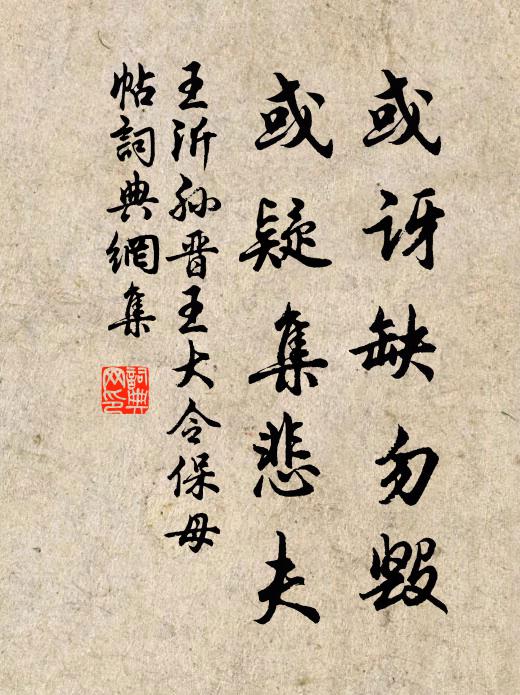 或讶缺勿毁
或疑集悲夫
王沂孙晋王大令保母
帖詞典網集
詞典網印